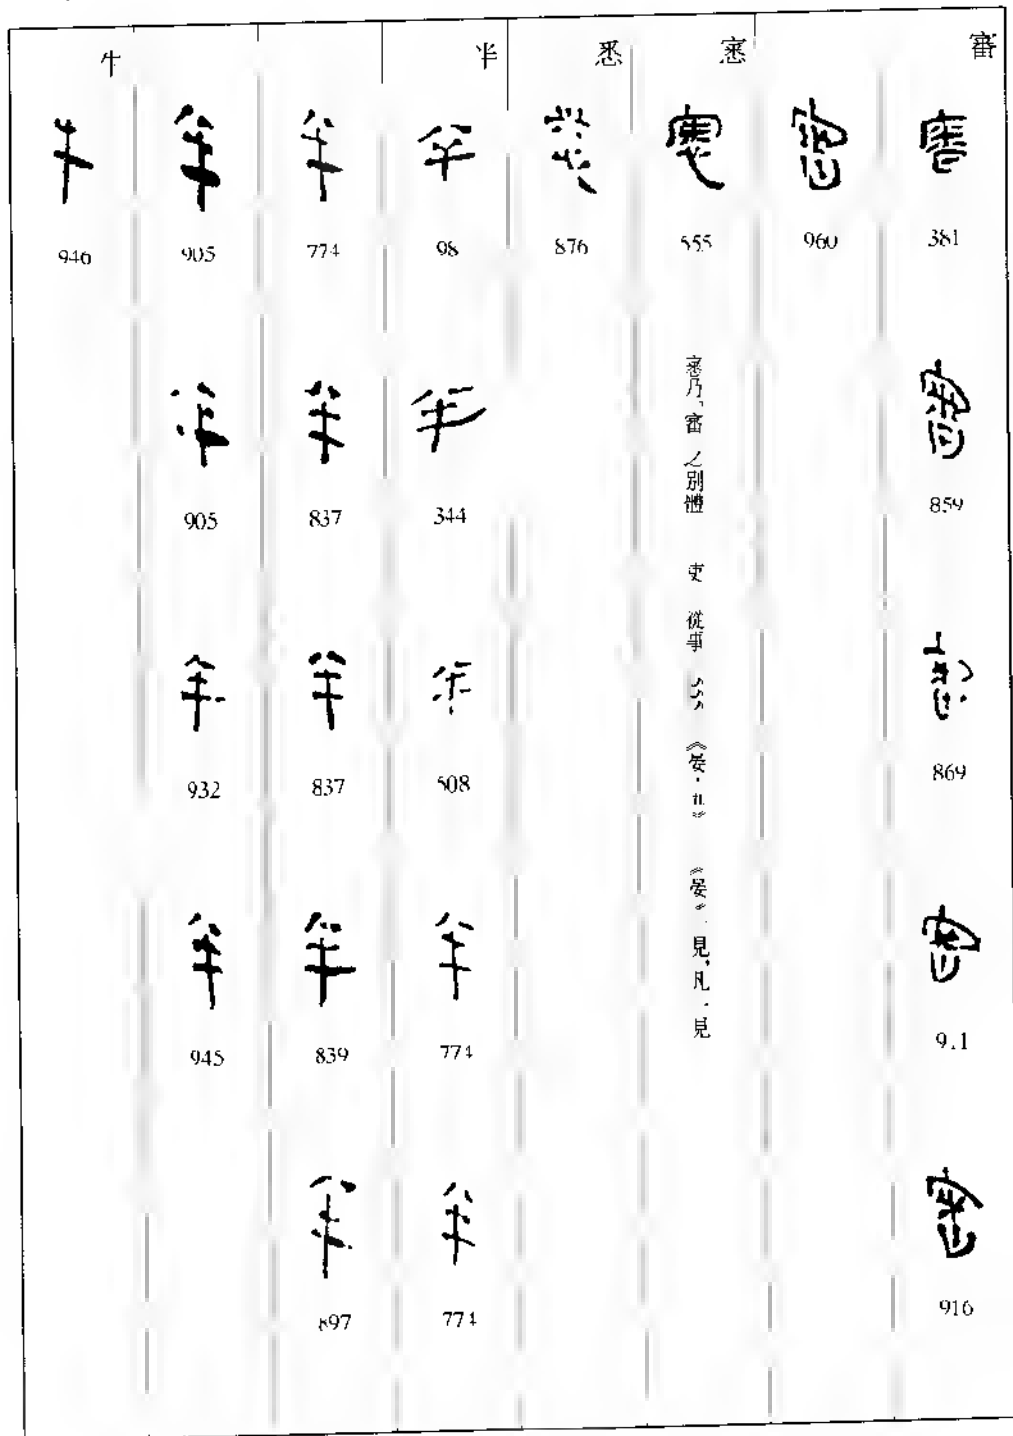 審
381
859
869
916
960
悉
555
悉乃審之別體 吏從事 555 《晏·九》 《晏》一見,凡一見
悉
876
半
98
344
508
774
774
774
837
837
839
897
905
905
932
945
牛
946